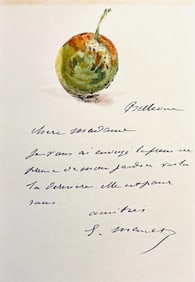 Bellevue
chère madame
je vous ai envoyé la fleur et
prune de mon jardin voilà
la dernière elle est pour
vous.
amitiés
E. Manet